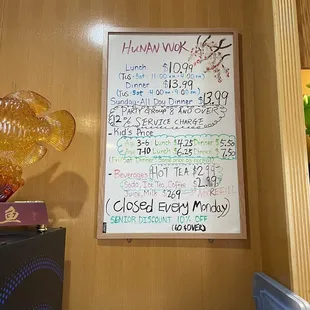 HUNAN WOK
Lunch $10.99
(Tus-Sat 11:00 AM - 4:00 PM)
Dinner $13.99
(Tus-Sat 4:00 PM - 9:00 PM)
Sunday-All Day Dinner $13.99
PARTY GROUP 8 AND OVER
12% SERVICE CHARGE
Kid's Price
Age 3-6 Lunch $4.25 Dinner $5.50
Age 7-10 Lunch $6.25 Dinner $7.50
Beverages HOT TEA $2.99
Soda, Ice Tea, Coffee $2.49
Milk $2.69
(Closed Every Monday)
SENIOR DISCOUNT 10% OFF
(60 & OVER)